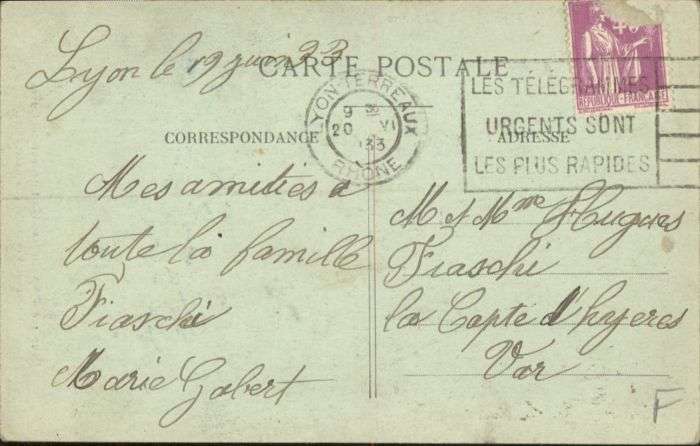 Lyon le 19 juin 33
CARTE POSTALE
LYON TERREAUX
9 H
20 VI
1933
RHÔNE
LES TÉLÉGRAMMES
URGENTS SONT
LES PLUS RAPIDES
REPUBLIQUE FRANÇAISE
CORRESPONDANCE
ADRESSE
Mes amitiés a
toute la famille
Fiaschi
Marie Gobert
M et Mme Hugues
Fiaschi
la Capte d'hyeres
Var
F